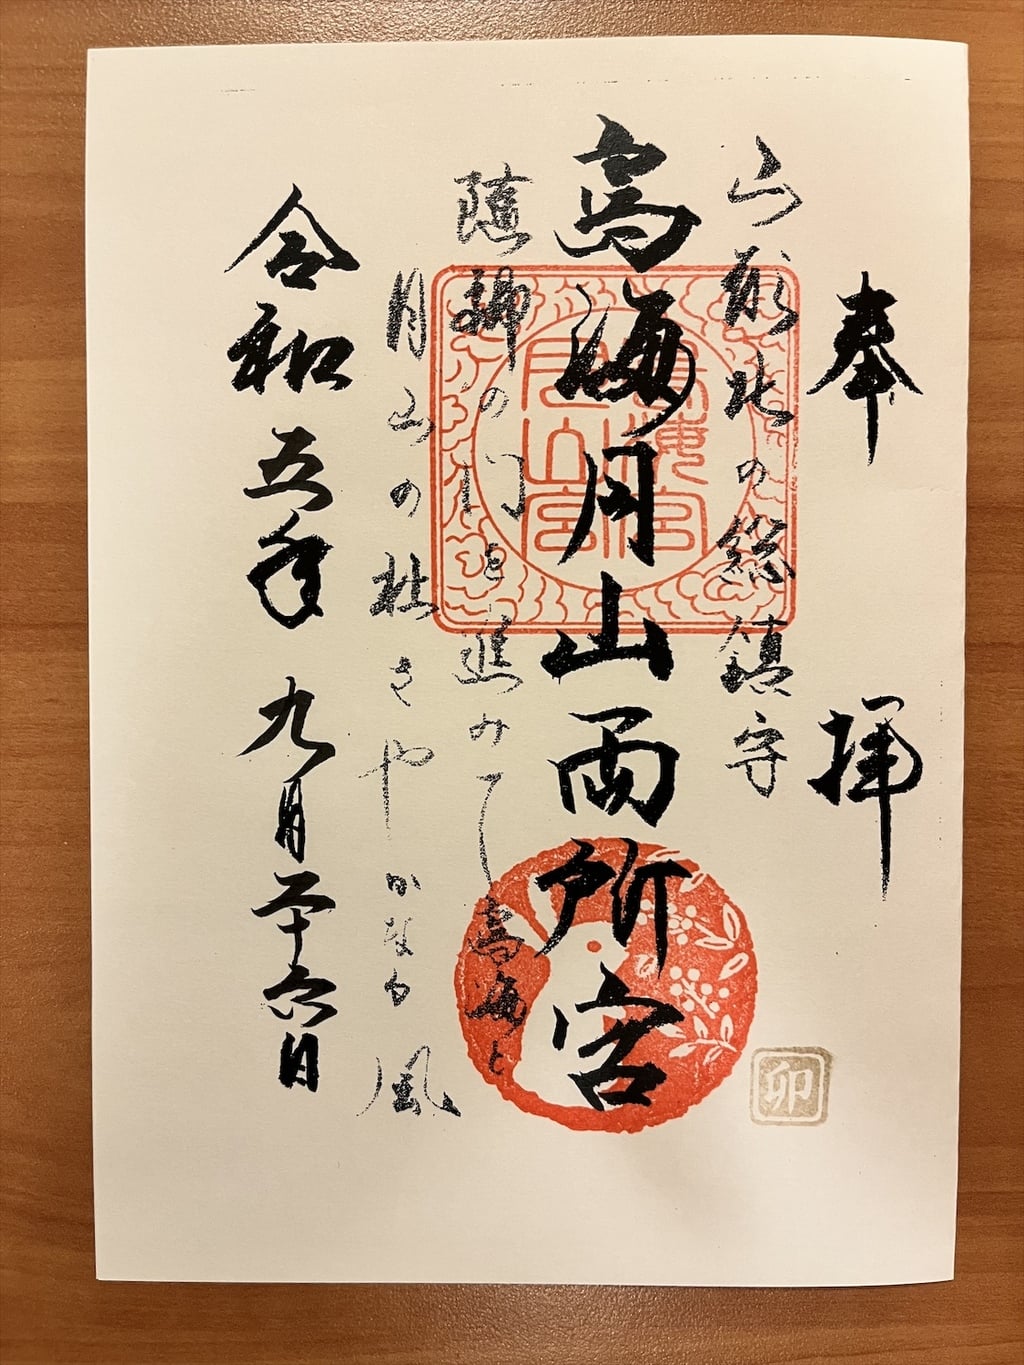 奉拝
山形北の総鎮守
鳥海月山両所宮
隨神の門を進みて鳥海と
月山の杜さやかなる風
令和五年九月二十六日
鳥海宮
月山宮
卯